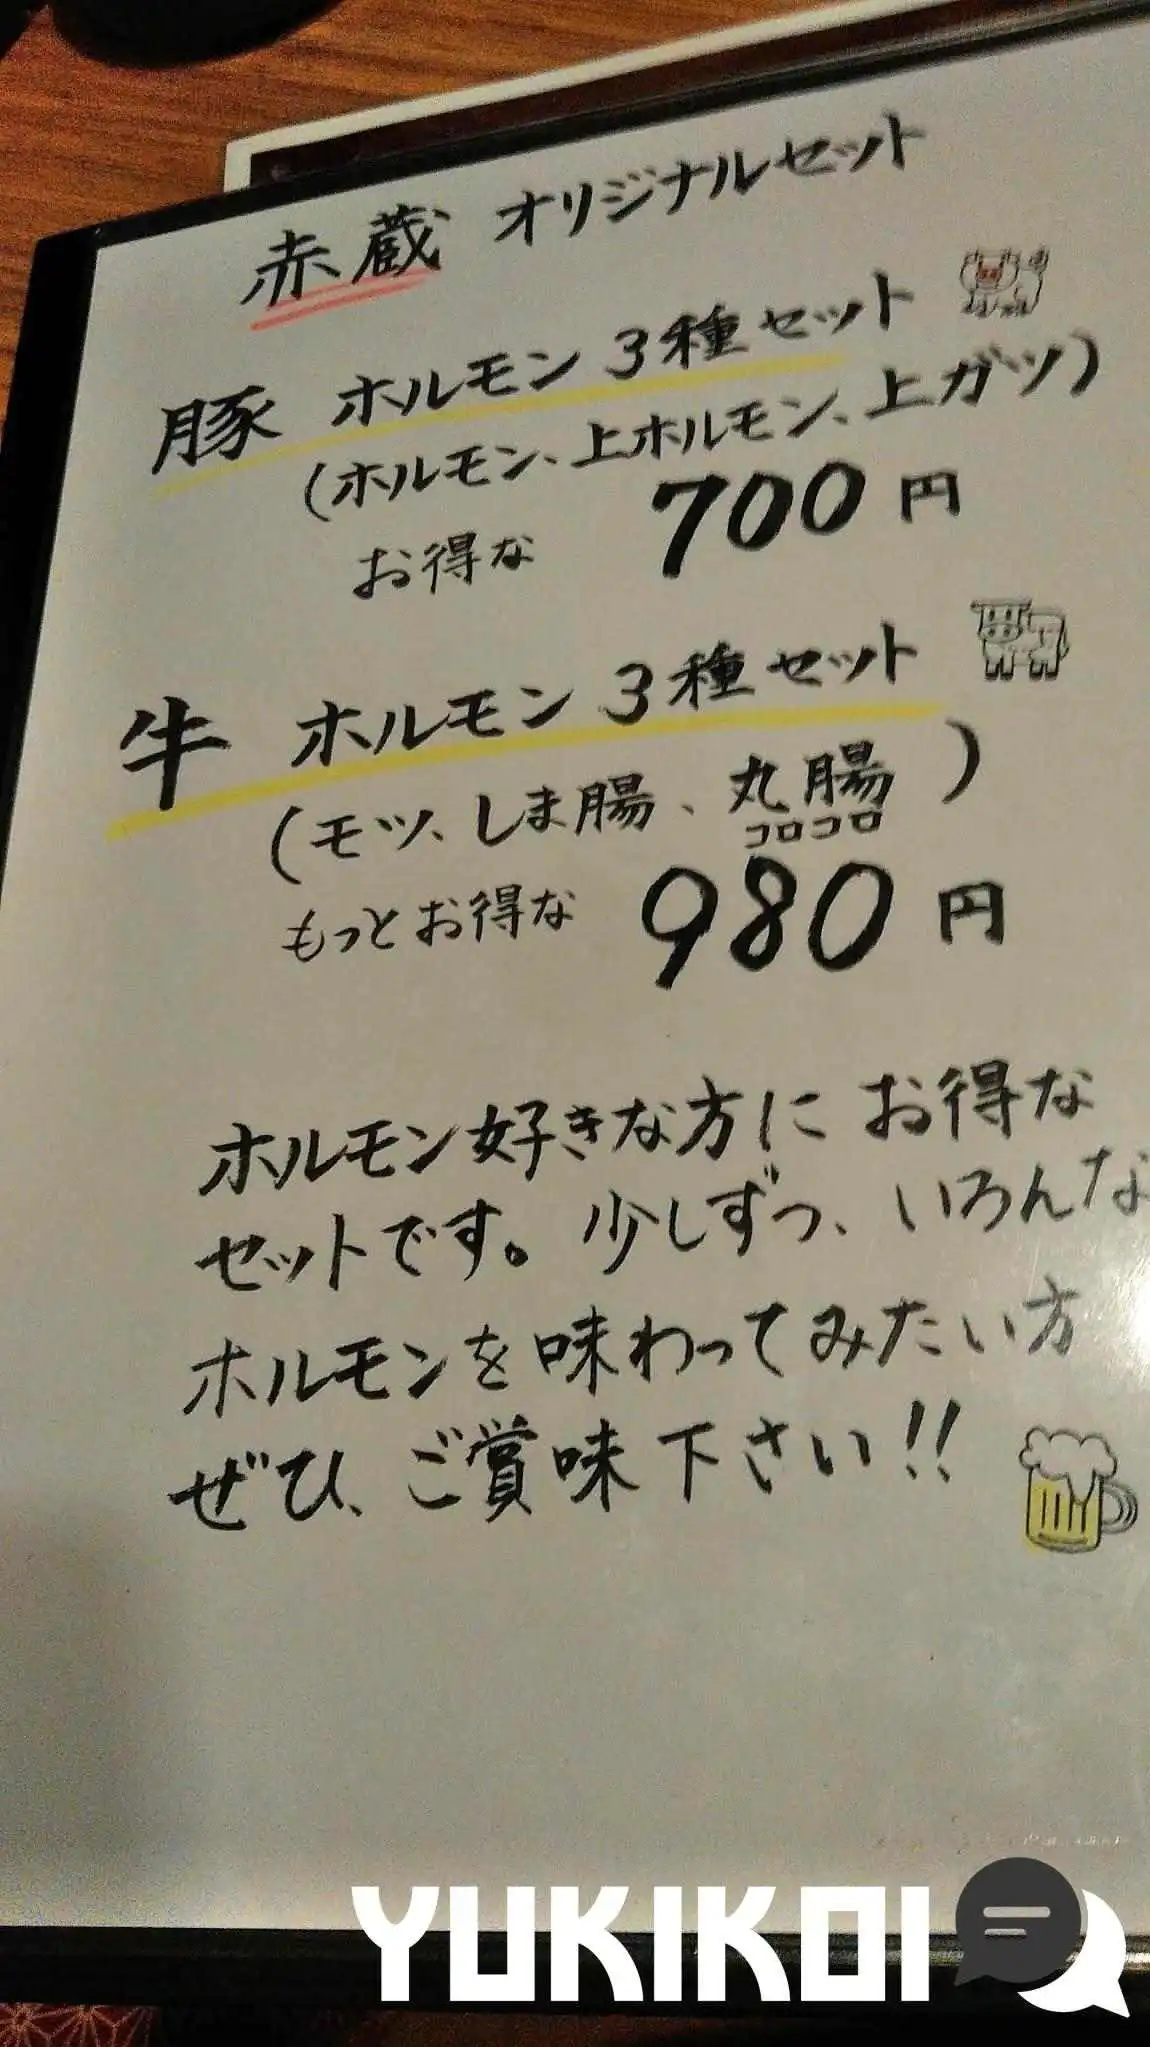 赤蔵 オリジナルセット
豚 ホルモン 3種セット
(ホルモン、上ホルモン、上ガツ)
お得な 700円
牛 ホルモン 3種セット
(モツ、しま腸、丸腸)
コロコロ
もっとお得な 980円
ホルモン好きな方に お得な
セットです。少しずつ、いろんな
ホルモンを味わってみたい方
ぜひ、ご賞味下さい!!
YUKIKOI